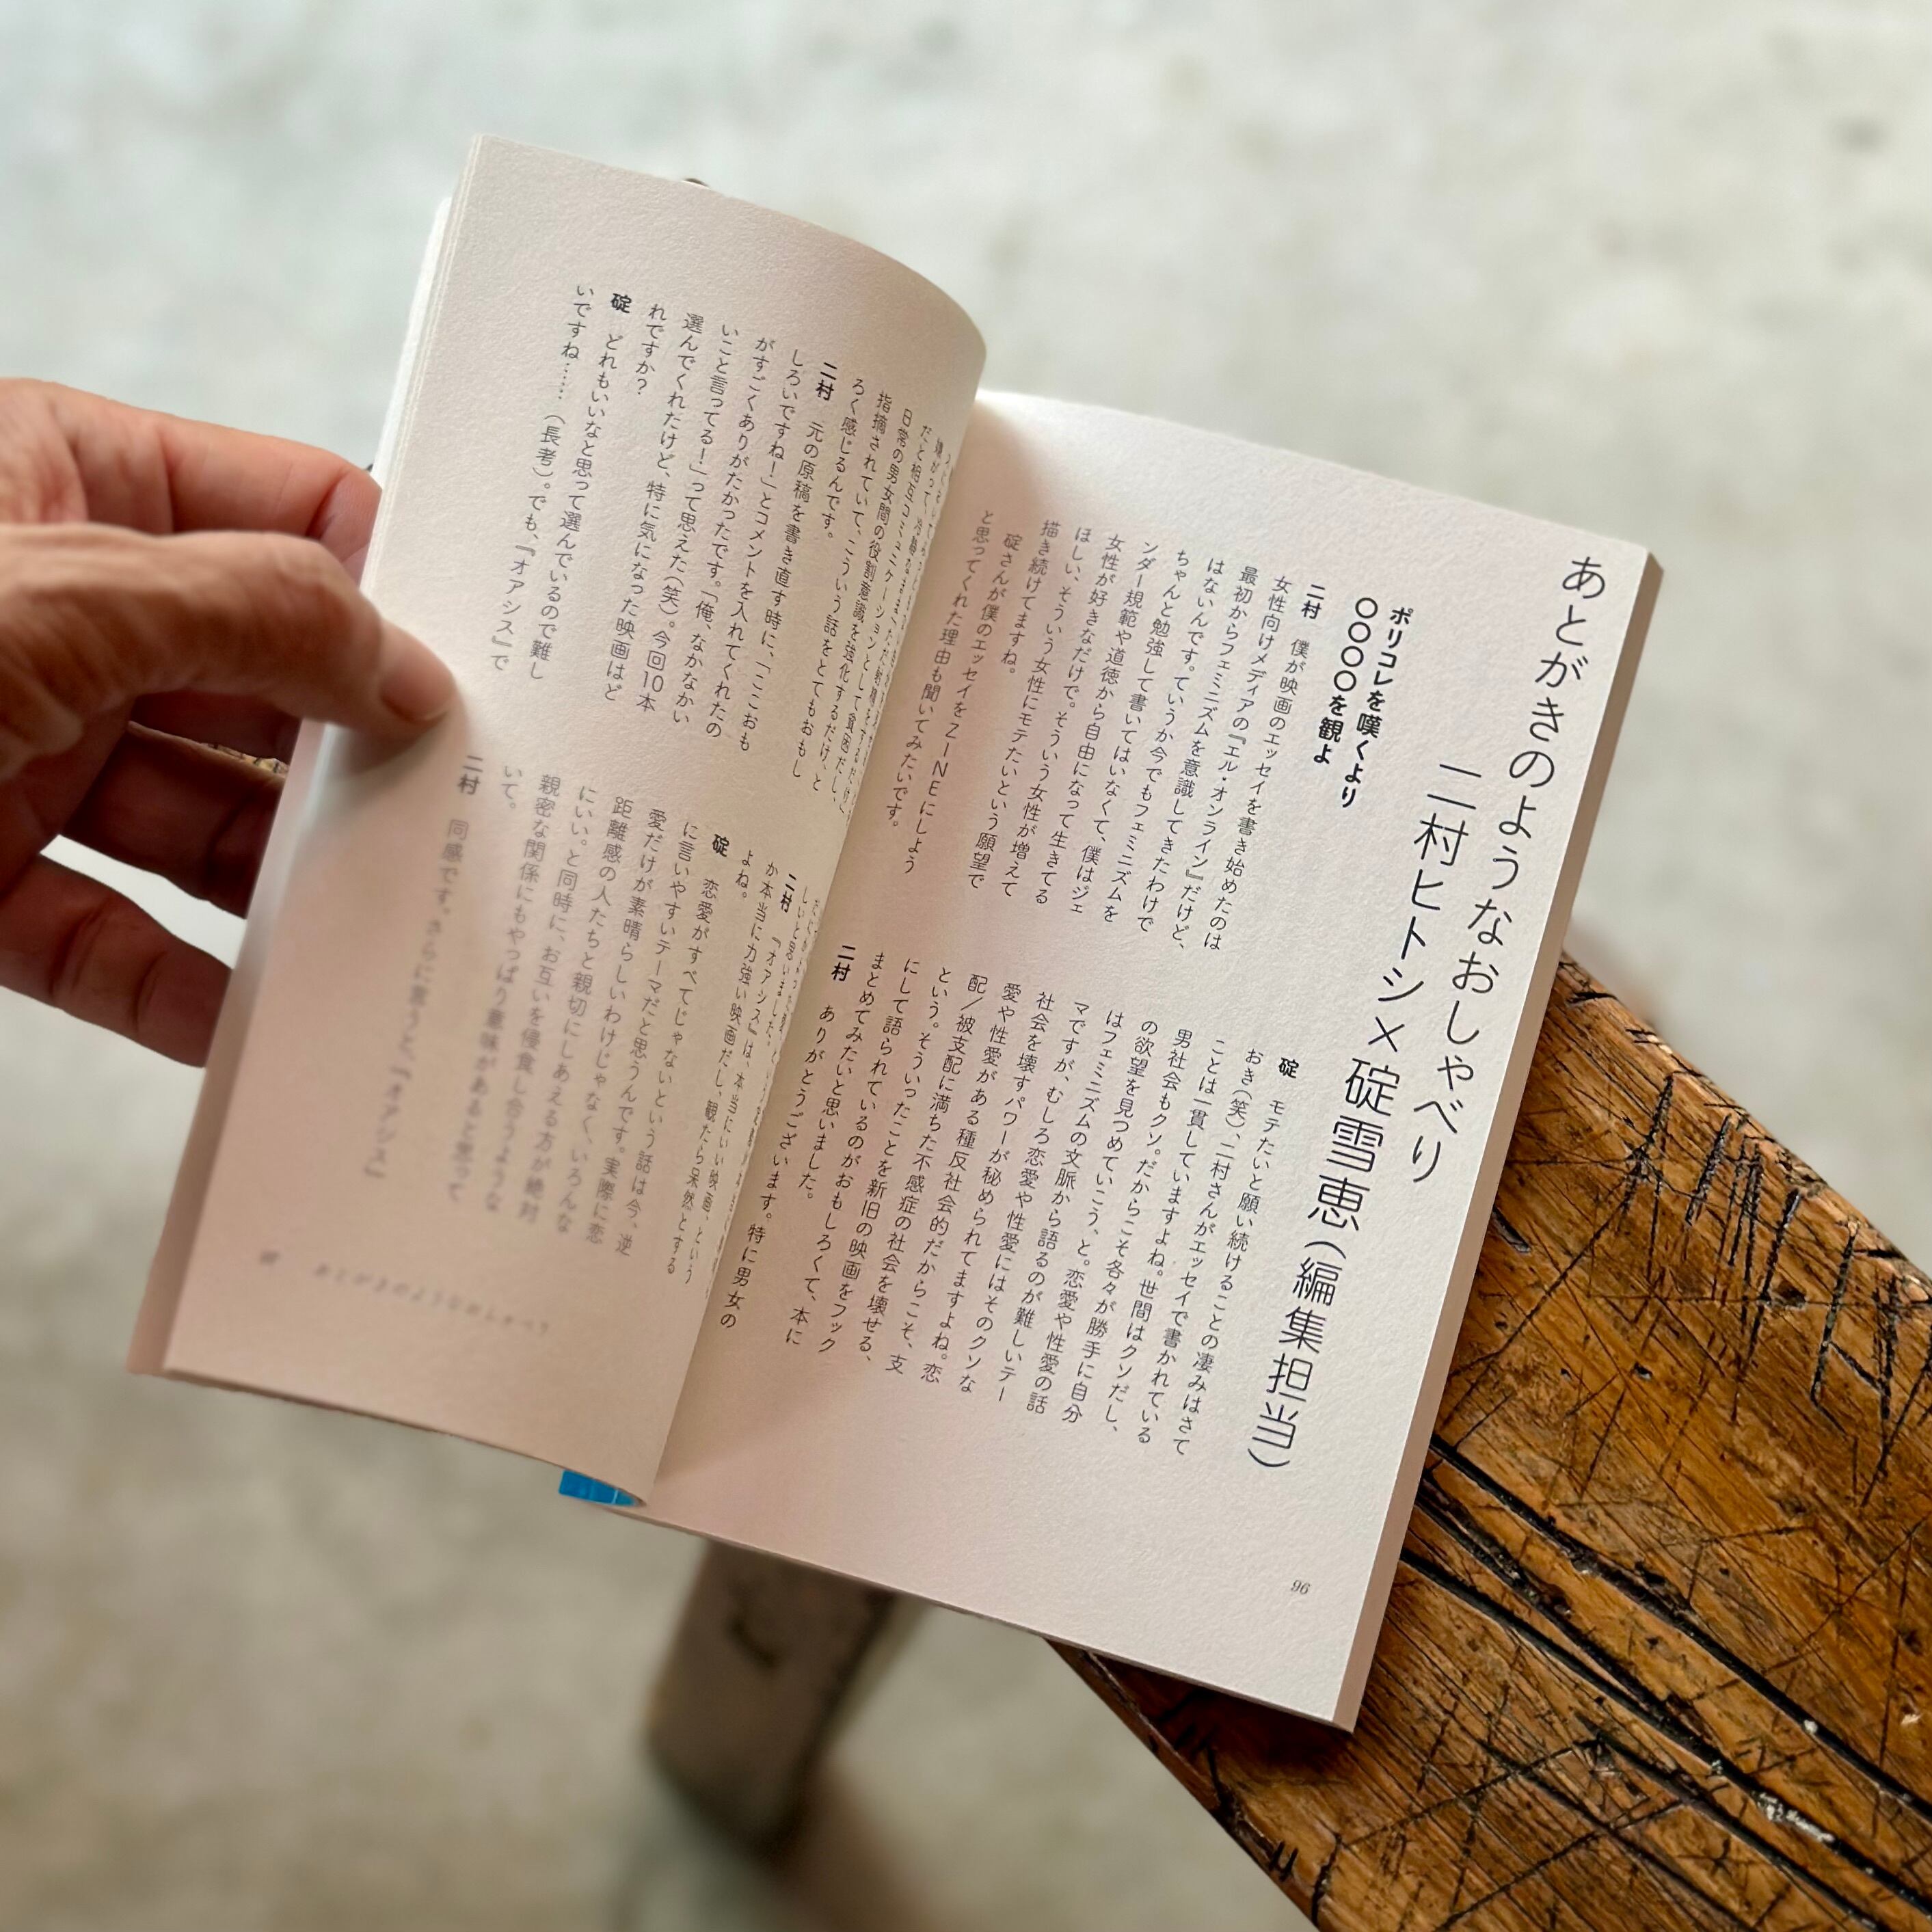 あとがきのようなおしゃべり
二村ヒトシ×碇雪恵(編集担当)
ポリコレを嘆くより
〇〇〇〇を観よ
二村 僕が映画のエッセイを書き始めたのは
女性向けメディアの『エル・オンライン』だけど、
最初からフェミニズムを意識してきたわけで
はないんです。ていうか今でもフェミニズムを
ちゃんと勉強して書いてはいなくて、僕はジェ
ンダー規範や道徳から自由になって生きてる
女性が好きなだけで。そういう女性が増えて
ほしい、そういう女性にモテたいという願望で
描き続けてますね。
碇さんが僕のエッセイをZINEにしよう
と思ってくれた理由も聞いてみたいです。
碇 モテたいと願い続けることの凄みはさて
おき(笑)、二村さんがエッセイで書かれている
ことは一貫していますよね。世間はクソだし、
男社会もクソ。だからこそ各々が勝手に自分
の欲望を見つめていこう、と。恋愛や性愛の話
はフェミニズムの文脈から語るのが難しいテー
マですが、むしろ恋愛や性愛にはそのクソな
社会を壊すパワーが秘められてますよね。恋
愛や性愛がある種反社会的だからこそ、支
配/被支配に満ちた不感症の社会を壊せる、
という。そういったことを新旧の映画をフック
にして語られているのがおもしろくて、本に
まとめてみたいと思いました。
二村 ありがとうございます。特に男女の
96
日常の男女間の役割意識を強化するだけ、と
指摘されていて、こういう話をとてもおもし
ろく感じるんです。
二村 元の原稿を書き直す時に、「ここおも
しろいですね!」とコメントを入れてくれたの
がすごくありがたかったです。「俺、なかなかい
いこと言ってる!」って思えた(笑)。今回10本
選んでくれたけど、特に気になった映画はど
れですか?
碇 どれもいいなと思って選んでいるので難し
いですね……(長考)。でも、『オアシス』で
二村 『オアシス』は、本当にいい映画、という
か本当に力強い映画だし、観たら呆然とする
よね。
碇 恋愛がすべてじゃないという話は今、逆
に言いやすいテーマだと思うんです。実際に恋
愛だけが素晴らしいわけじゃなく、いろんな
距離感の人たちと親切にしあえる方が絶対
にいい。と同時に、お互いを侵食し合うような
親密な関係にもやっぱり意味があると思って
いて。
二村 同感です。さらに言うと、『オアシス』
あとがきのようなおしゃべり